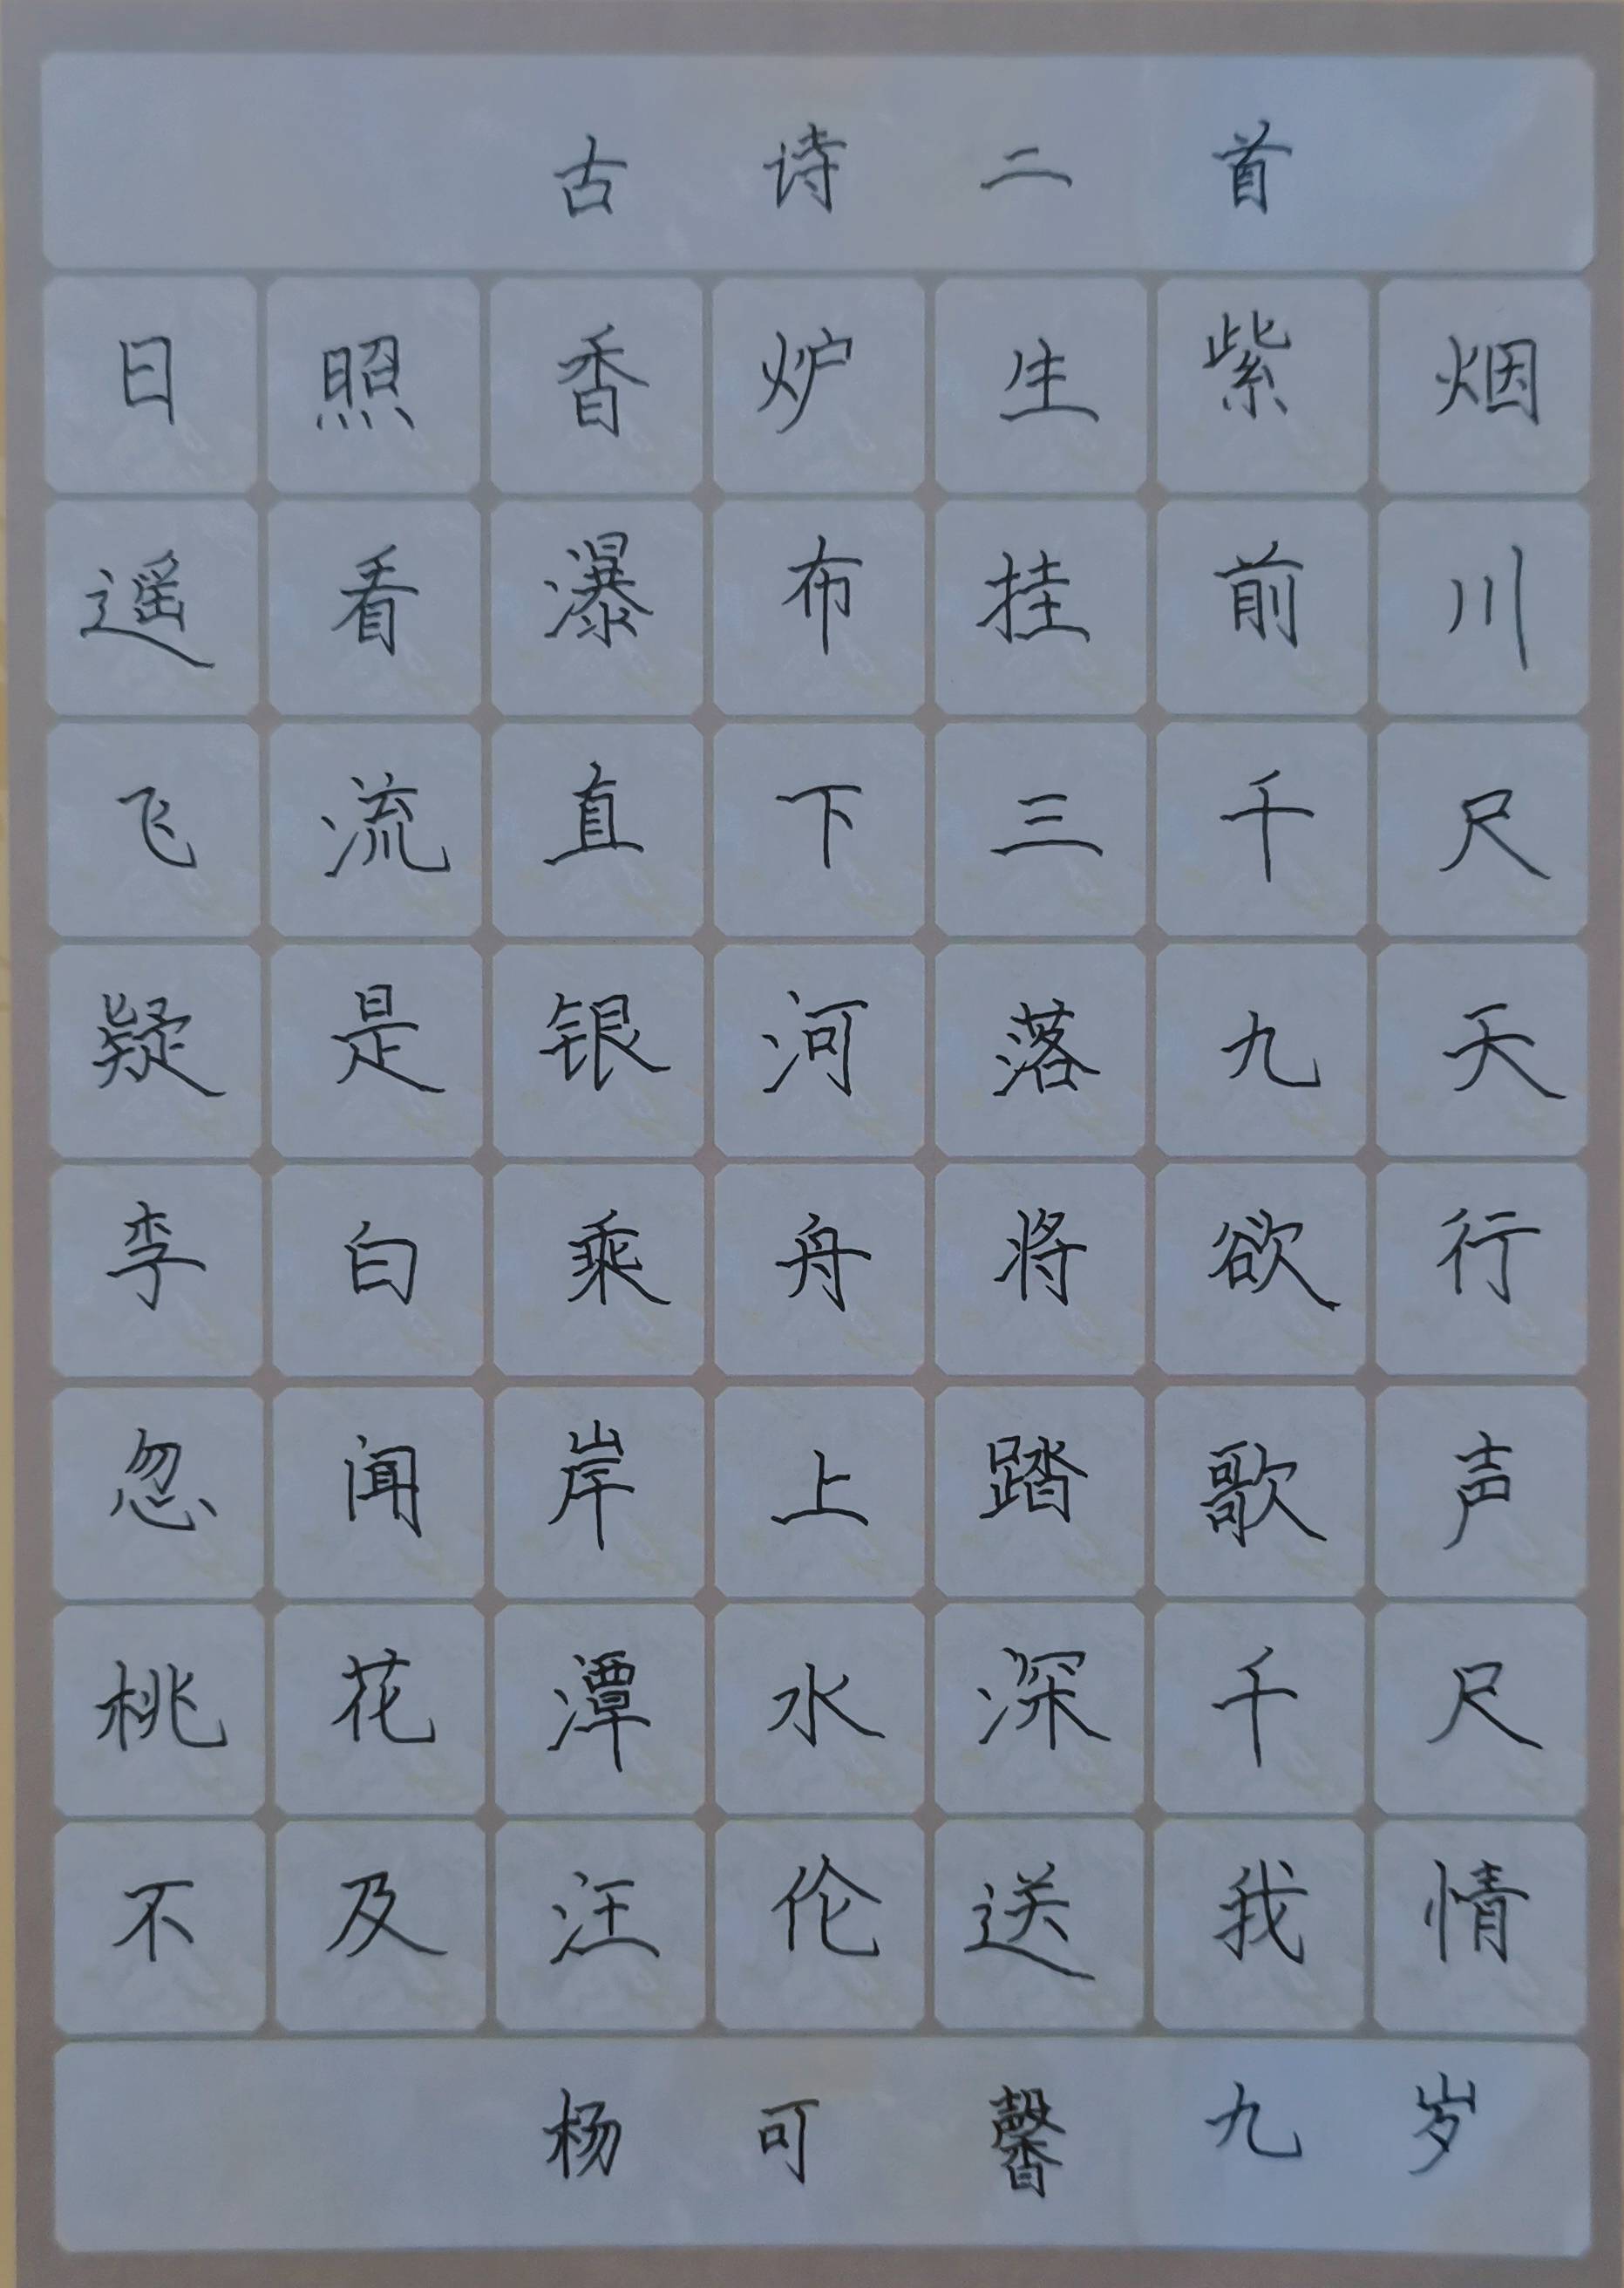 古诗二首
日照香炉生紫烟
遥看瀑布挂前川
飞流直下三千尺
疑是银河落九天
李白乘舟将欲行
忽闻岸上踏歌声
桃花潭水深千尺
不及汪伦送我情
杨可馨九岁